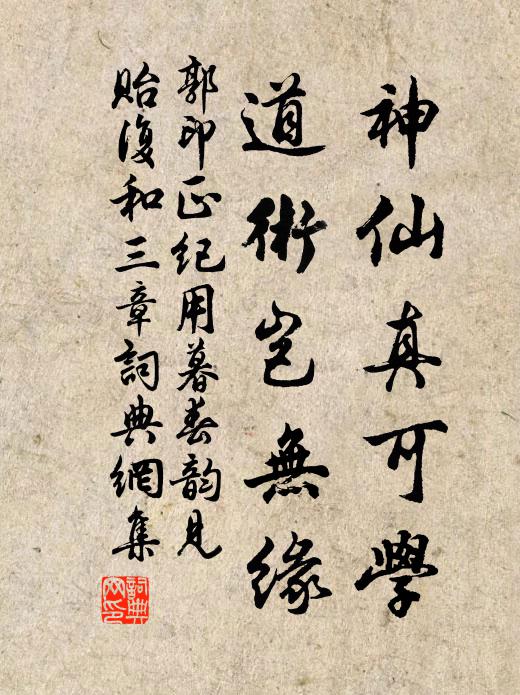 神仙真可學
道術豈無緣
郭印正紀用暮春韵見
貽復和三章詞典網集
詞典
网印